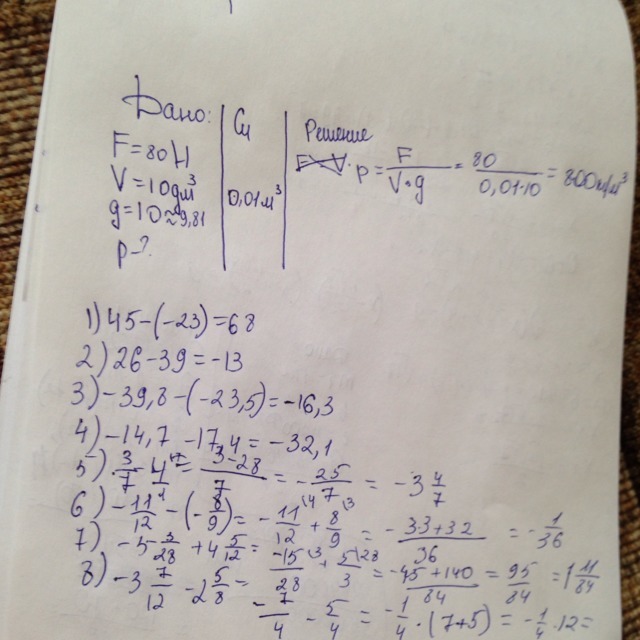 Дано:
F=80H
V=10дм³
g=10≈9,81
p-?
Си
0,01м³
Решение
p = F/(V·g) = 80/(0,01·10) = 800кг/м³
1) 45-(-23)=68
2) 26-39=-13
3) -39,8-(-23,5)=-16,3
4) -14,7-17,4=-32,1
5) 3/7-4 = (3-28)/7 = -25/7 = -3 4/7
6) -11/12-(-8/9) = -11/12+8/9 = (-33+32)/36 = -1/36
7) -5 3/28+4 5/12 = -15/28+5/3 = (-45+140)/84 = 95/84 = 1 11/84
8) -3 7/12-2 5/8 = -7/4-5/4 = -1/4·(7+5) = -1/4·12=